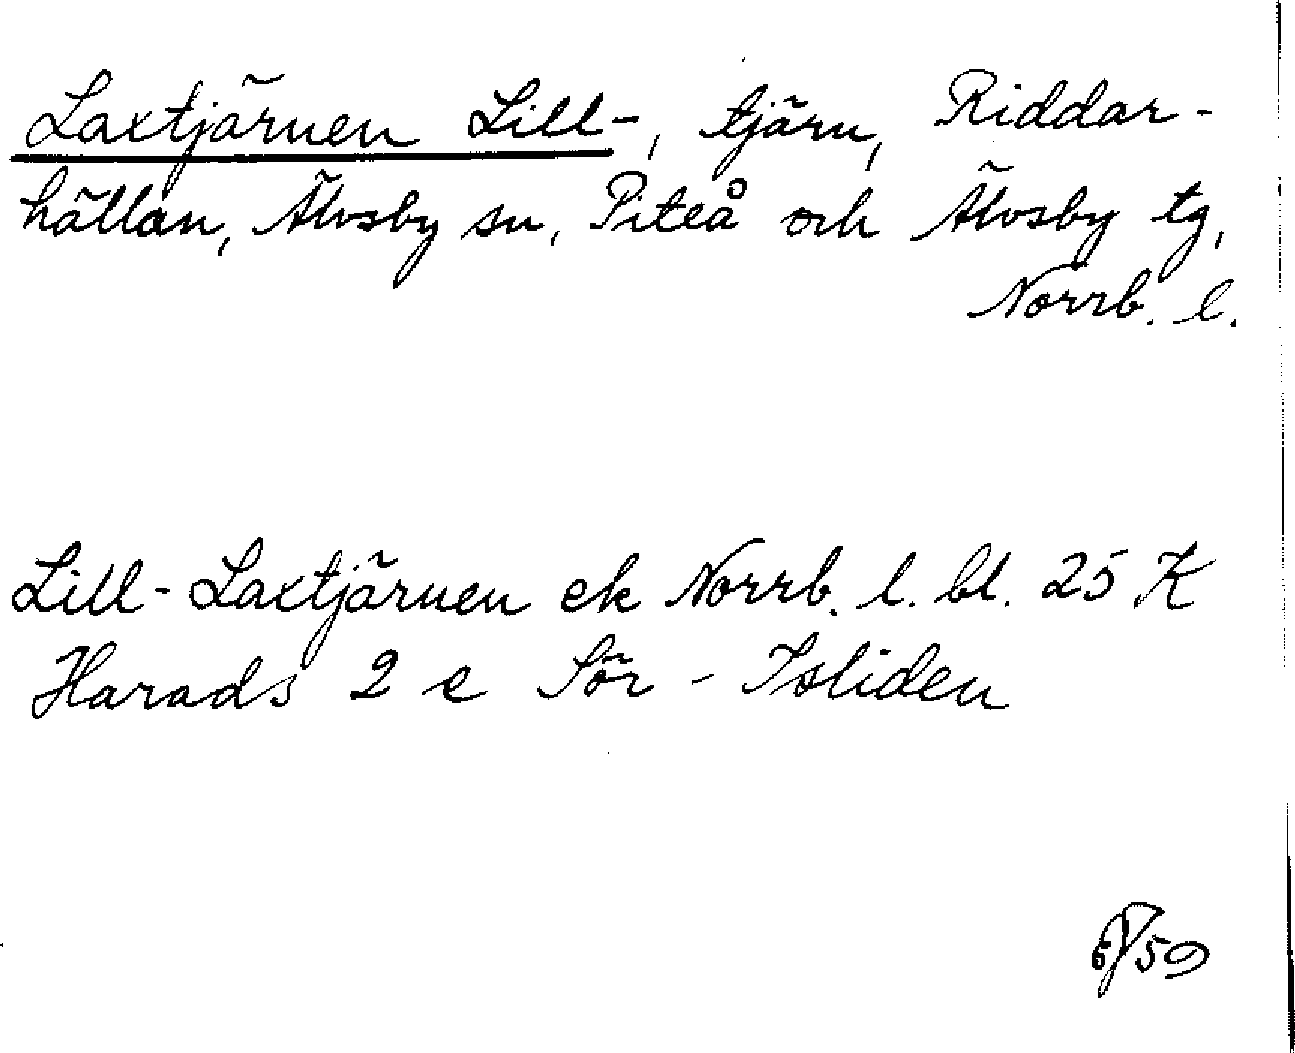 Laxtjärnen Lill-, tjärn, Riddar-
hällan, Älvsby sn, Piteå och Älvsby tg,
Norrb. l.
Lill-Laxtjärnen ek Norrb. l. bl. 25 K
Harads 2 e Sör-Isliden